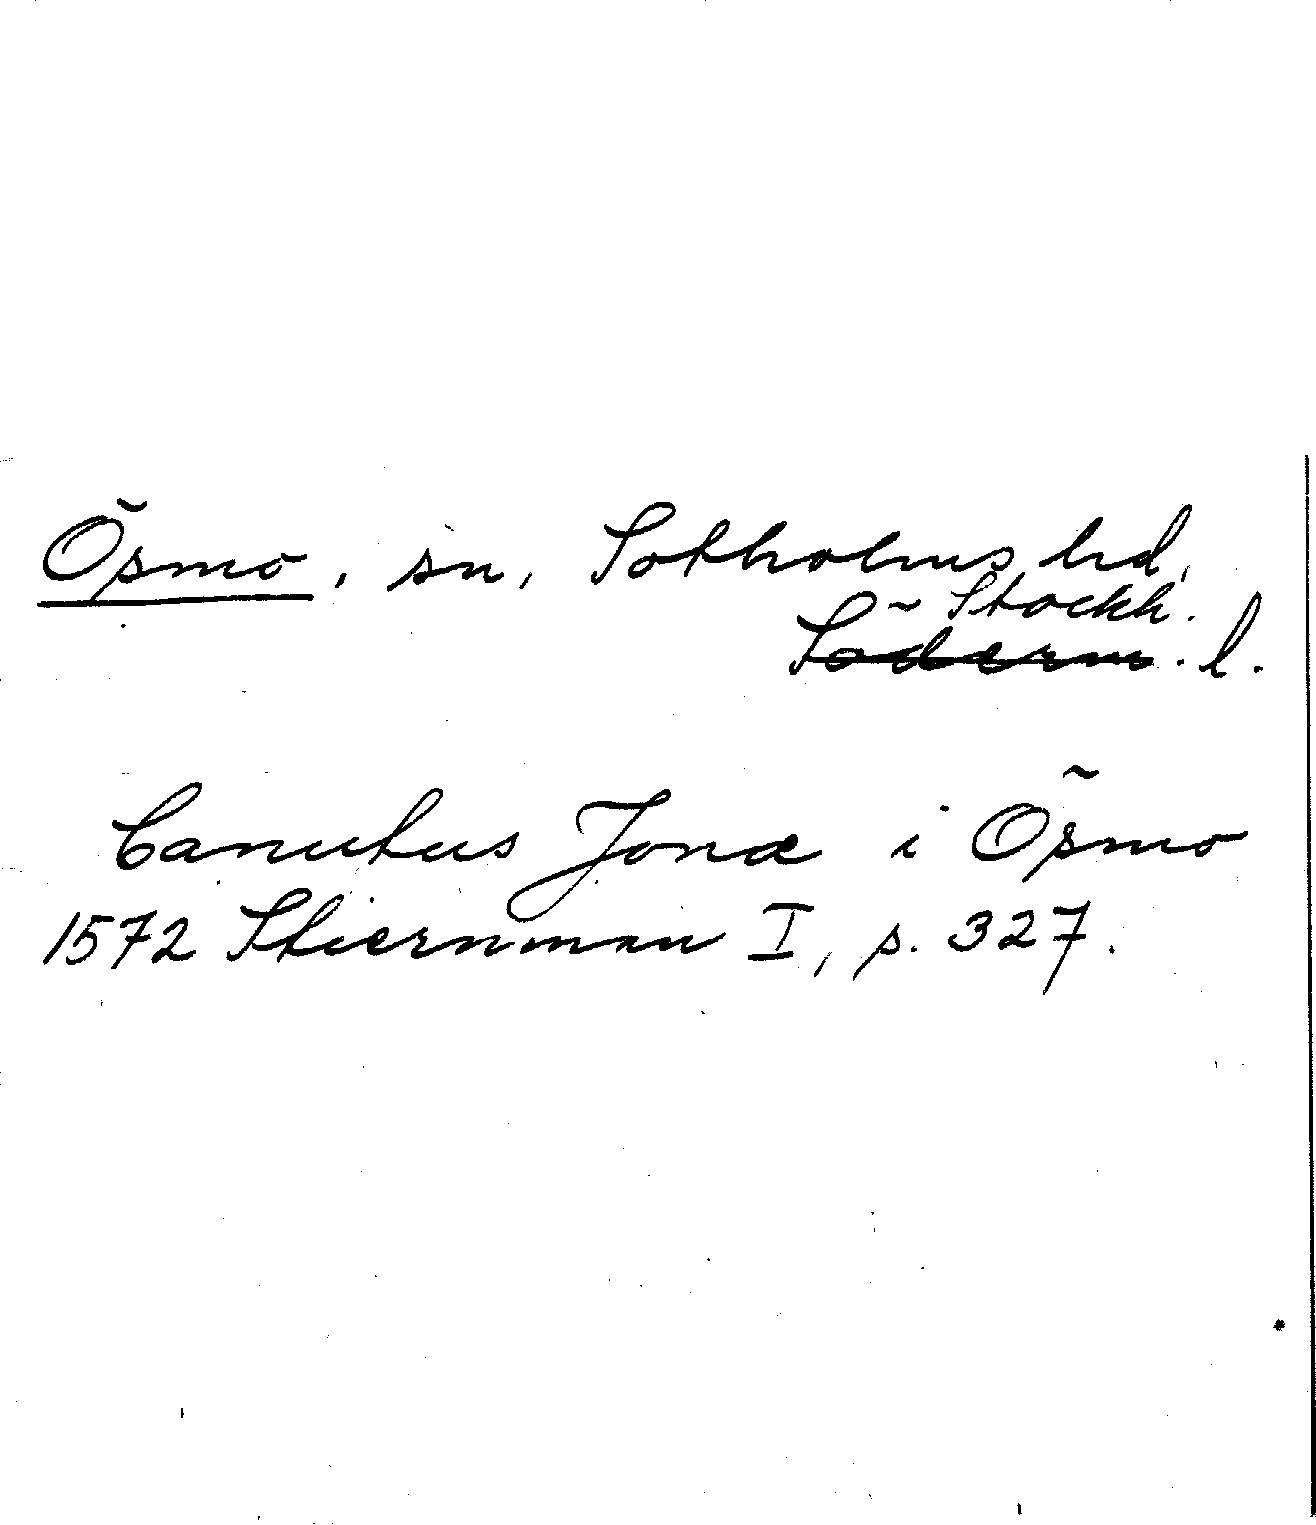 Ösmo, sn, Sotholms hd,
Stockh.
Söderm. l.
Canutus Jonæ i Ösmo
1572 Stiernman I, s. 327.